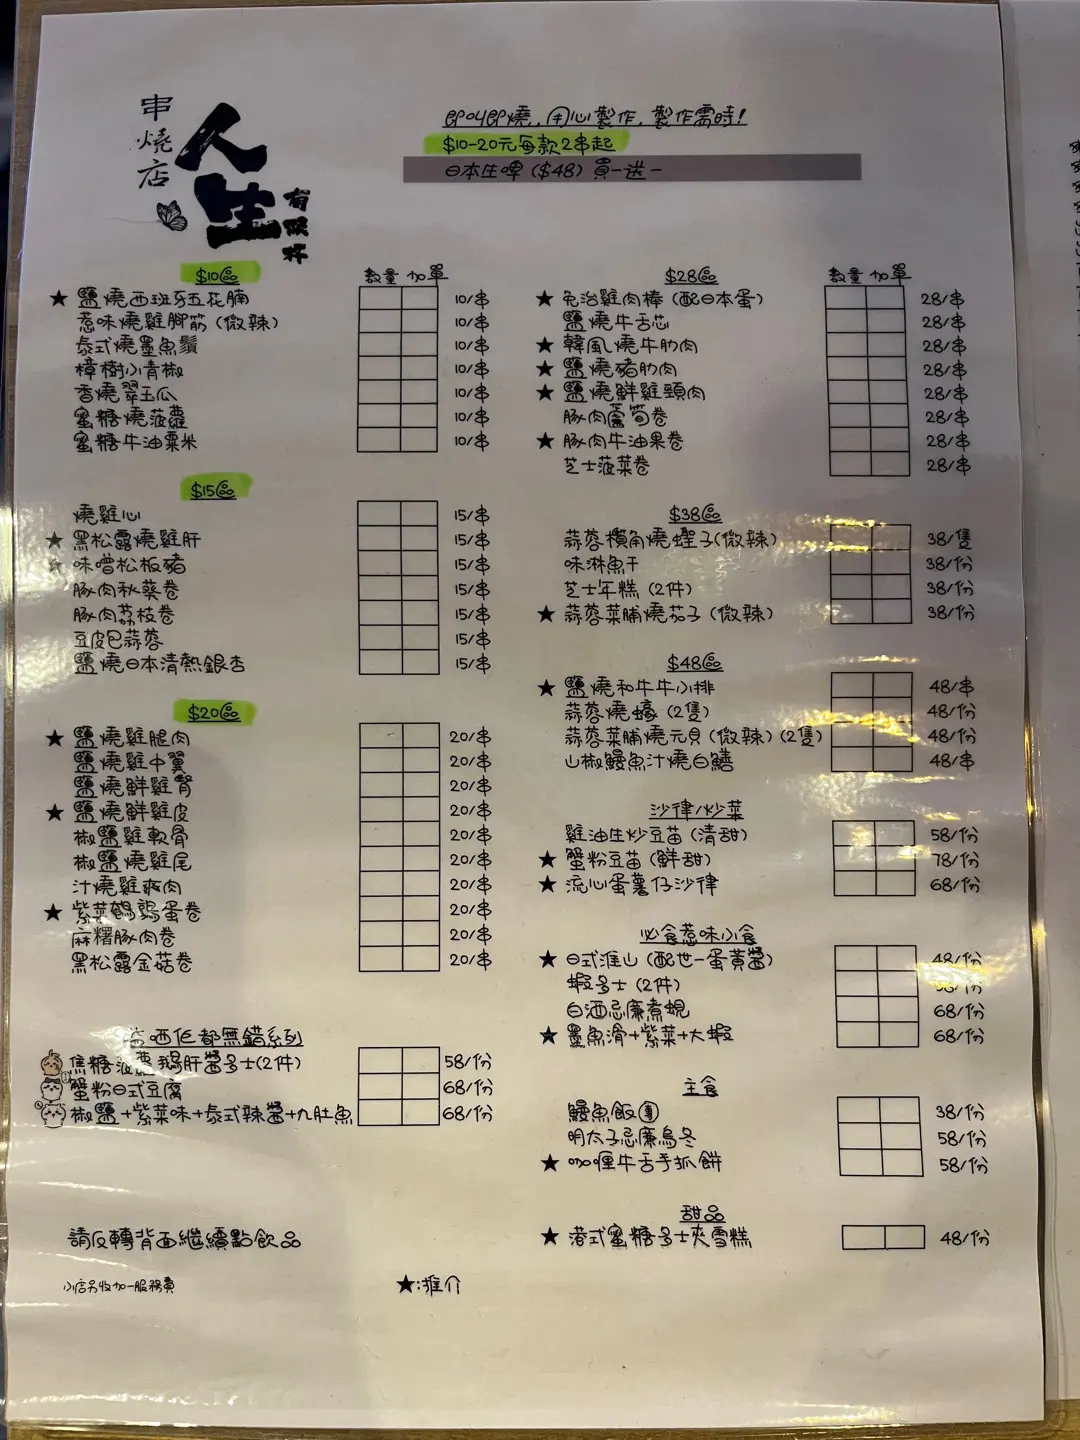 串燒店
人生
有限杯
即叫即燒，用心製作，製作需時！
$10-20元每款2串起
日本生啤 ($48) 買一送一
$10區 數量 加單
★ 鹽燒西班牙五花腩 10/串
惹味燒雞腳筋 (微辣) 10/串
泰式燒墨魚鬚 10/串
樟樹小青椒 10/串
香燒翠玉瓜 10/串
蜜糖燒菠蘿 10/串
蜜糖牛油粟米 10/串
$15區
燒雞心 15/串
★ 黑松露燒雞肝 15/串
★ 味噌松板豬 15/串
豚肉秋葵卷 15/串
豚肉荔枝卷 15/串
豆皮包蒜蓉 15/串
鹽燒日本清熱銀杏 15/串
$20區
★ 鹽燒雞腿肉 20/串
鹽燒雞中翼 20/串
鹽燒鮮雞腎 20/串
★ 鹽燒鮮雞皮 20/串
椒鹽雞軟骨 20/串
椒鹽燒雞尾 20/串
汁燒雞爽肉 20/串
★ 紫菜鵪鶉蛋卷 20/串
麻糬豚肉卷 20/串
黑松露金菇卷 20/串
嗒晒佢都無錯系列
焦糖菠蘿鵝肝醬多士(2件) 58/份
蟹粉日式豆腐 68/份
椒鹽+紫菜味+泰式辣醬+九肚魚 68/份
請反轉背面繼續點飲品
小店另收加一服務費
★:推介
$28區 數量 加單
★ 免治雞肉棒 (配日本蛋) 28/串
鹽燒牛舌芯 28/串
★ 韓風燒牛肋肉 28/串
★ 鹽燒豬肋肉 28/串
★ 鹽燒鮮雞頸肉 28/串
豚肉蘆筍卷 28/串
★ 豚肉牛油果卷 28/串
芝士菠菜卷 28/串
$38區
蒜蓉欖角燒蟶子(微辣) 38/隻
味淋魚干 38/份
芝士年糕 (2件) 38/份
★ 蒜蓉菜脯燒茄子 (微辣) 38/份
$48區
★ 鹽燒和牛牛小排 48/串
蒜蓉燒蠔 (2隻) 48/份
蒜蓉菜脯燒元貝 (微辣) (2隻) 48/份
山椒鰻魚汁燒白鱔 48/串
沙律/炒菜
雞油生炒豆苗 (清甜) 58/份
★ 蟹粉豆苗 (鮮甜) 78/份
★ 流心蛋薯仔沙律 68/份
必食惹味小食
★ 日式淮山 (配世一蛋黃醬) 48/份
蝦多士 (2件) /份
白酒忌廉煮蜆 68/份
★ 墨魚滑+紫菜+大蝦 68/份
主食
鰻魚飯團 38/份
明太子忌廉烏冬 58/份
★ 咖喱牛舌手抓餅 58/份
甜品
★ 港式蜜糖多士夾雪糕 48/份